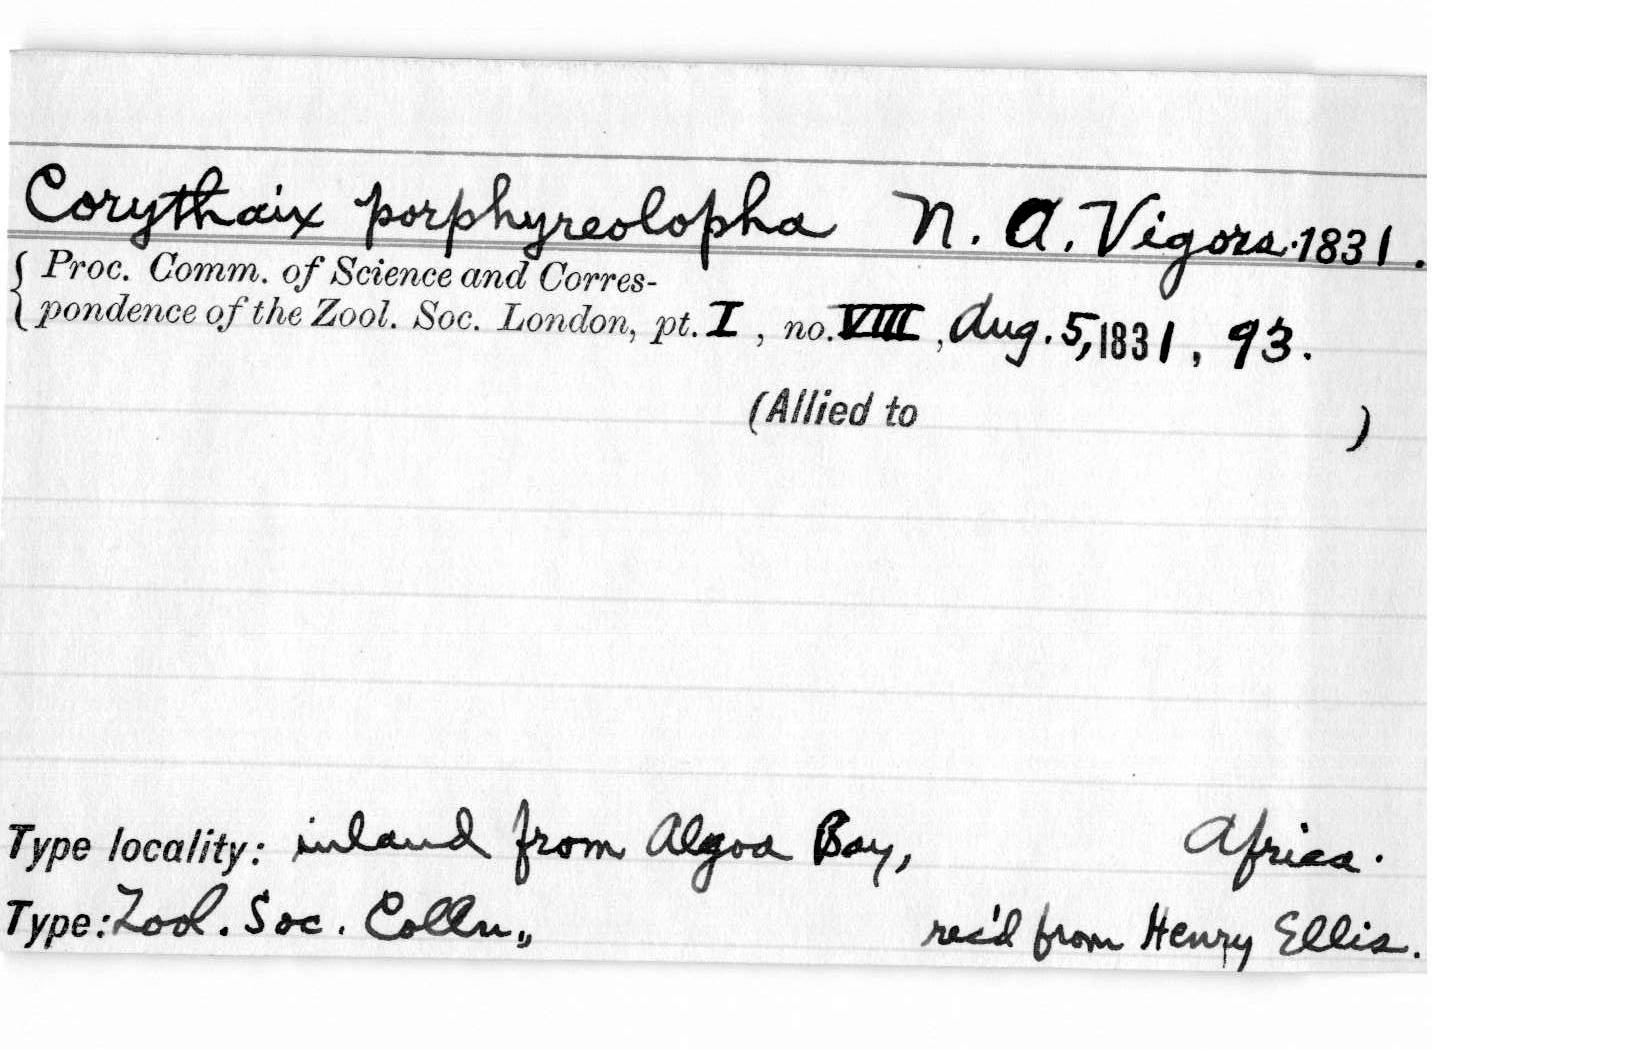 Corythaix porphyreolopha N. A. Vigors. 1831.
Proc. Comm. of Science and Corres-
pondence of the Zool. Soc. London, pt. I, no. VIII, Aug. 5, 1831, 93.
(Allied to )
Type locality: inland from Algoa Bay, Africa.
Type: Zool. Soc. Colln., rec'd from Henry Ellis.